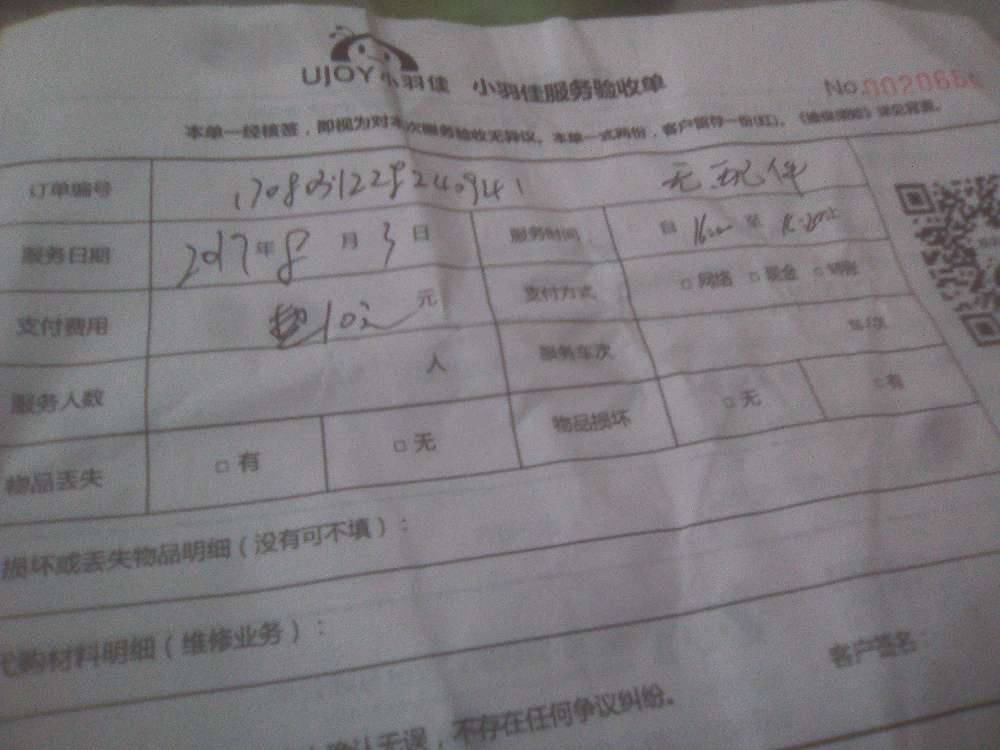 UJOY小羽佳 小羽佳服务验收单 No.002066
本单一经核签，即视为对本次服务验收无异议。本单一式两份，客户留存一份(红)。
订单编号
服务日期 2017年8月3日 服务时间 自 16:00 至
支付费用 元 支付方式 □网络 □现金 □转账
服务人数 人 服务车次 车次
物品丢失 □有 □无 物品损坏 □无 □有
损坏或丢失物品明细（没有可不填）：
代购材料明细（维修业务）：
客户签名
确认无误，不存在任何争议纠纷。